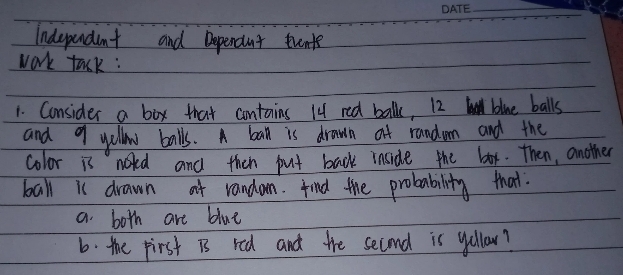 DATE
Independent and Dependent Events
Work Task:
1. Consider a box that contains 14 red balls, 12 blue balls
and 9 yellow balls. A ball is drawn at random and the
color is noted and then put back inside the box. Then, another
ball is drawn at random. Find the probability that:
a. both are blue
b. the first is red and the second is yellow?